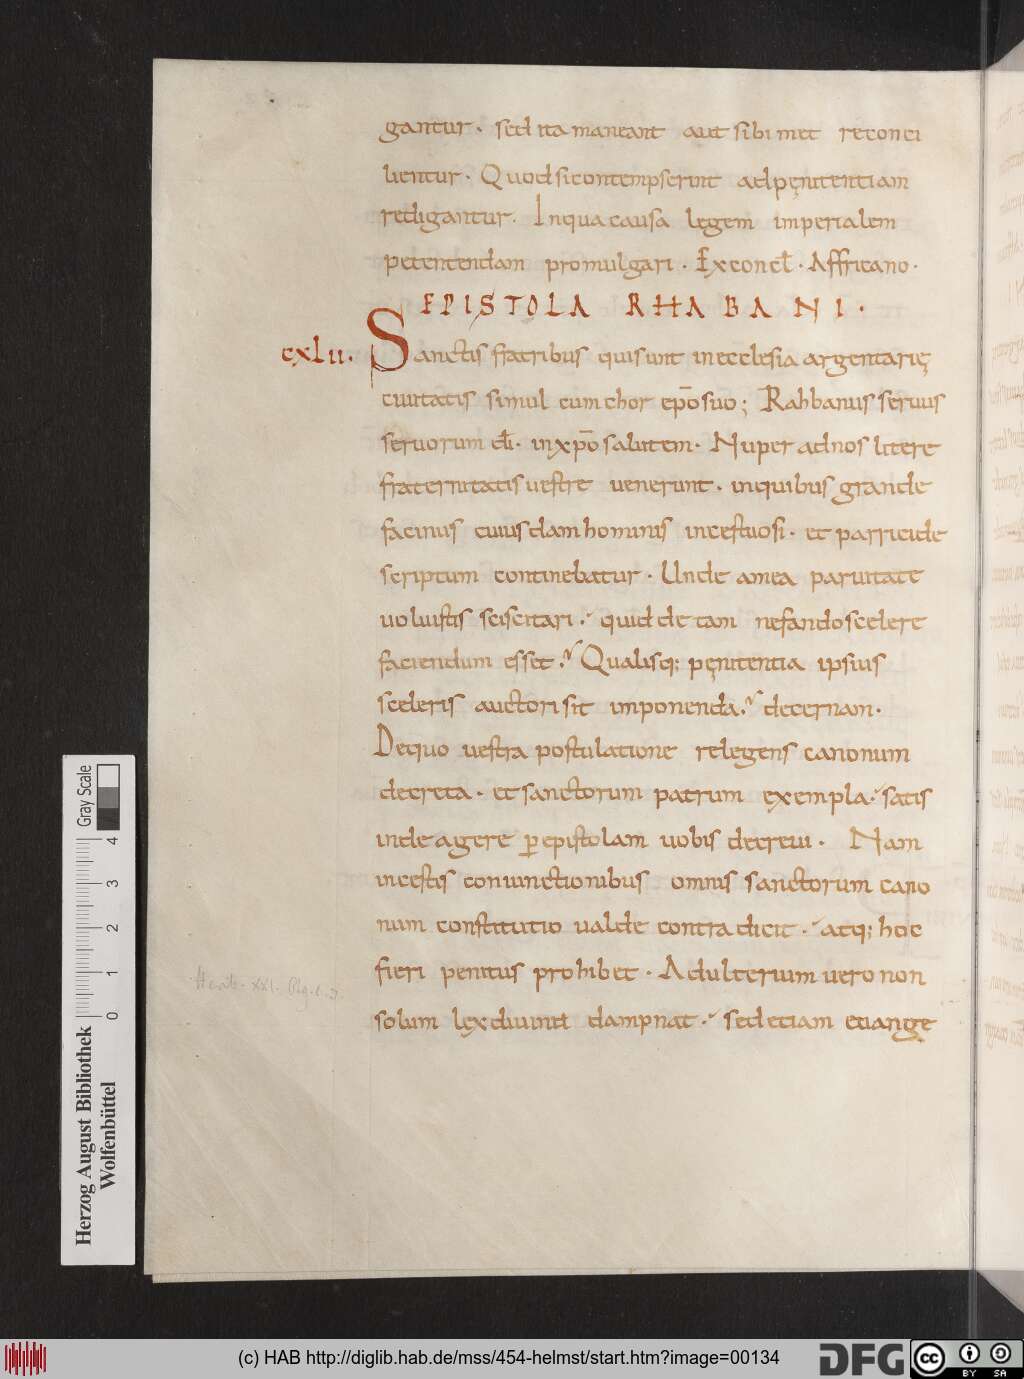 gantur. sed ita maneant aut sibimet reconci
lientur. Quod si contempserint ad pęnitentiam
redigantur. In qua causa legem imperialem
petentendam promulgari. Ex concł. Affricano.
EPISTOLA RHABANI.
cxlu. Sanctis fratribus qui sunt in ecclesia argentarię
ciuitatis simul cum chor ep̄o suo; Rahbanus seruus
seruorum dī. in xp̄o salutem. Nuper ad nos litere
fraternitatis uestre uenerunt. in quibus grande
facinus cuiusdam hominis incestuosi. et parricide
scriptum continebatur. Unde a mea paruitate
uoluistis sciscitari. quid de tam nefando scelere
faciendum esset. Qualisq; pęnitentia ipsius
sceleris auctori sit imponenda. decernam.
De quo uestra postulatione relegens canonum
decreta. et sanctorum patrum exempla. satis
inde agere p̲ epistolam uobis decreui. Nam
incestis coniunctionibus omnis sanctorum cano
num constitutio ualde contradicit. atq; hoc
fieri penitus prohibet. Adulterium uero non
solum lex diuina dampnat. sed etiam euange
Gray Scale
0 1 2 3 4
Herzog August Bibliothek
Wolfenbüttel
(c) HAB http://diglib.hab.de/mss/454-helmst/start.htm?image=00134
DFG
cc BY SA